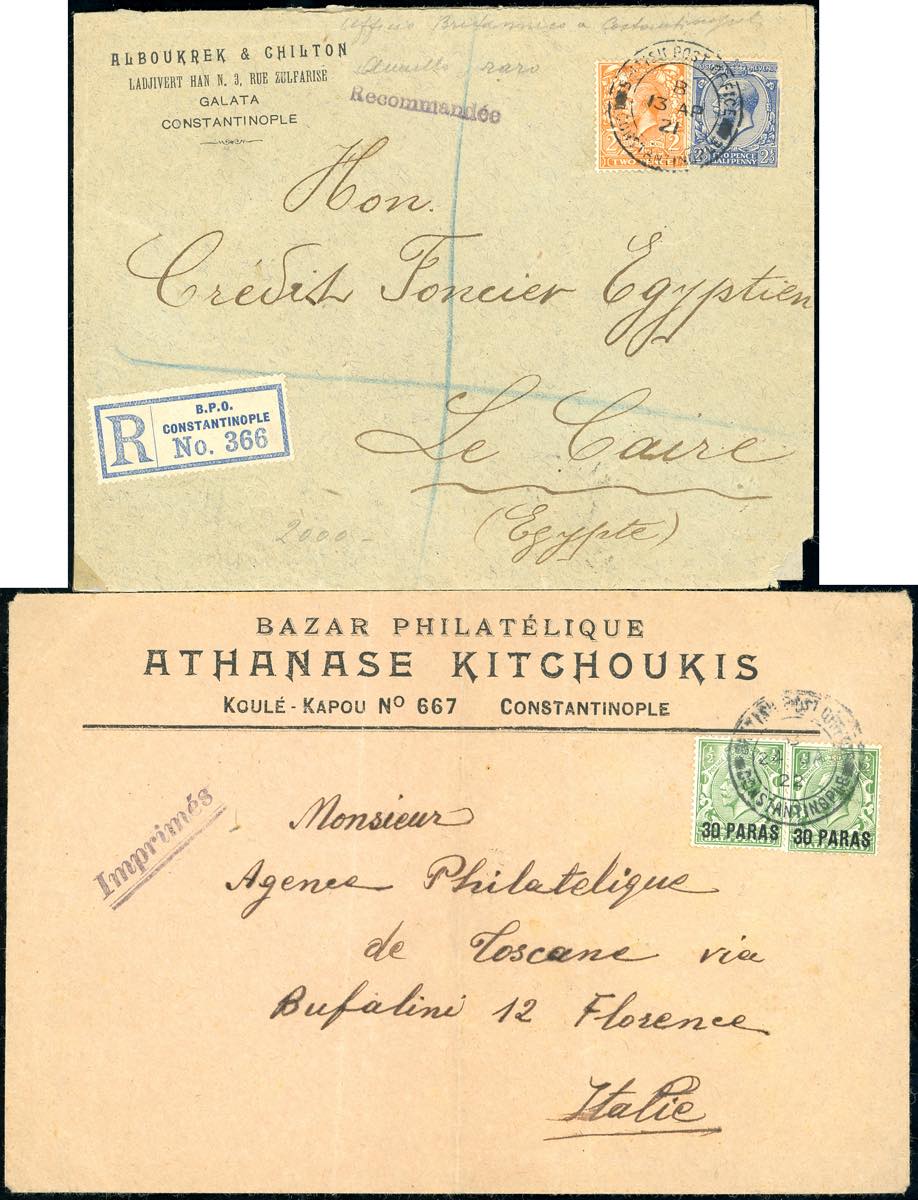 Ufficio Britannico a Costantinopoli
raro
ALBOUKREK & CHILTON
LADJIVERT HAN N. 3, RUE ZULFARISE
GALATA
CONSTANTINOPLE
Recommandée
BRITISH POST OFFICE
B
13 AP
21
CONSTANTINOPLE
2 2
TWO PENCE
TWO PENCE
HALFPENNY 2½
Hon.
Crédit Foncier Egyptien
Le Caire
(Egypte)
R
B.P.O.
CONSTANTINOPLE
No. 366
2000-
BAZAR PHILATÉLIQUE
ATHANASE KITCHOUKIS
KOULÉ-KAPOU No 667 CONSTANTINOPLE
BRITISH POST OFFICE
22
CONSTANTINOPLE
½ ½ ½
30 PARAS 30 PARAS
Imprimés
Monsieur
Agence Philatelique
de Toscane via
Bufalini 12 Florence
Italie